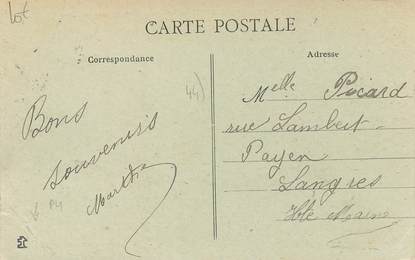 Lot
CARTE POSTALE
Correspondance
Adresse
44)
Bons
souvenirs
Martha
P4
Melle Picard
rue Lambert-
Payen
Langres
Hte Marne